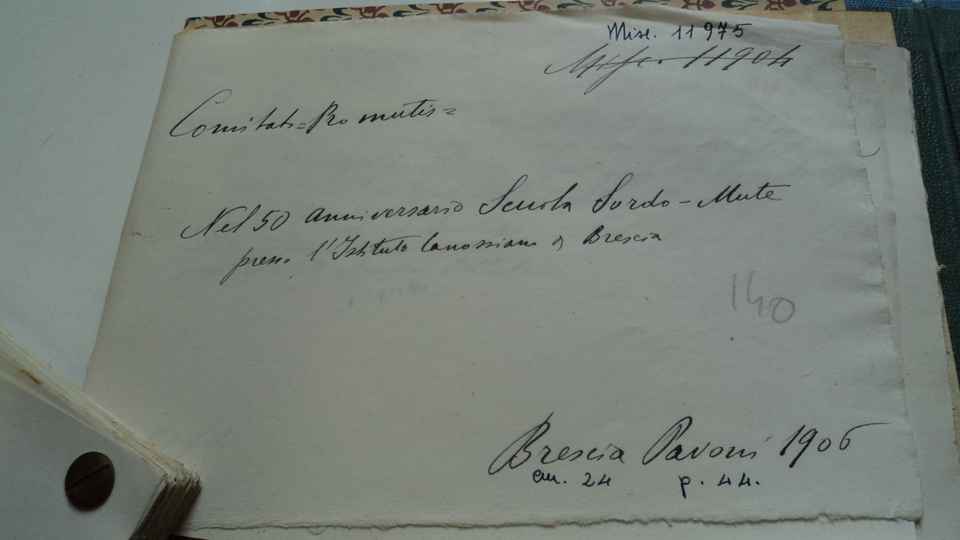 Misc. 11975
Misc. 11904
Comitato = Pro mutis =
Nel 50 anniversario Scuola Sordo-Mute
presso l'Istituto Canossiano di Brescia
140
Brescia Pavoni 1906
cm. 24 p. 44.